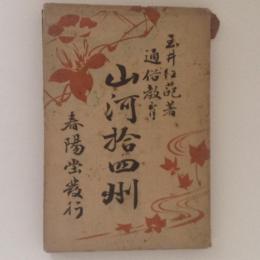 玉井紅葩著
通俗教育
山河拾四州
春陽堂發行